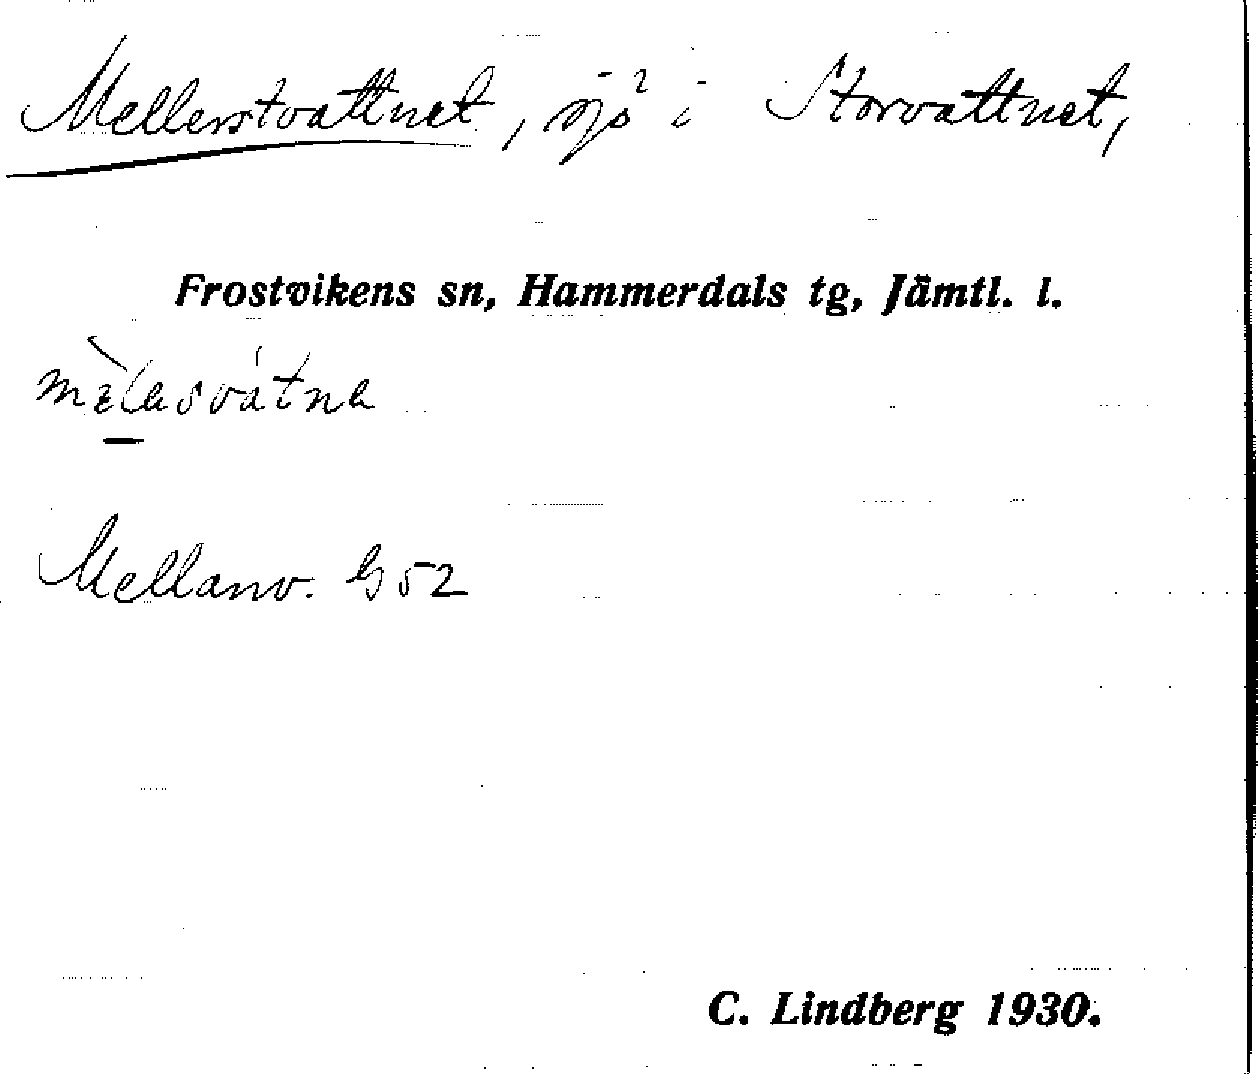 Mellerstvattnet, sjö i Storvattnet,
Frostvikens sn, Hammerdals tg, Jämtl. l.
Mellanv. G 52
C. Lindberg 1930.